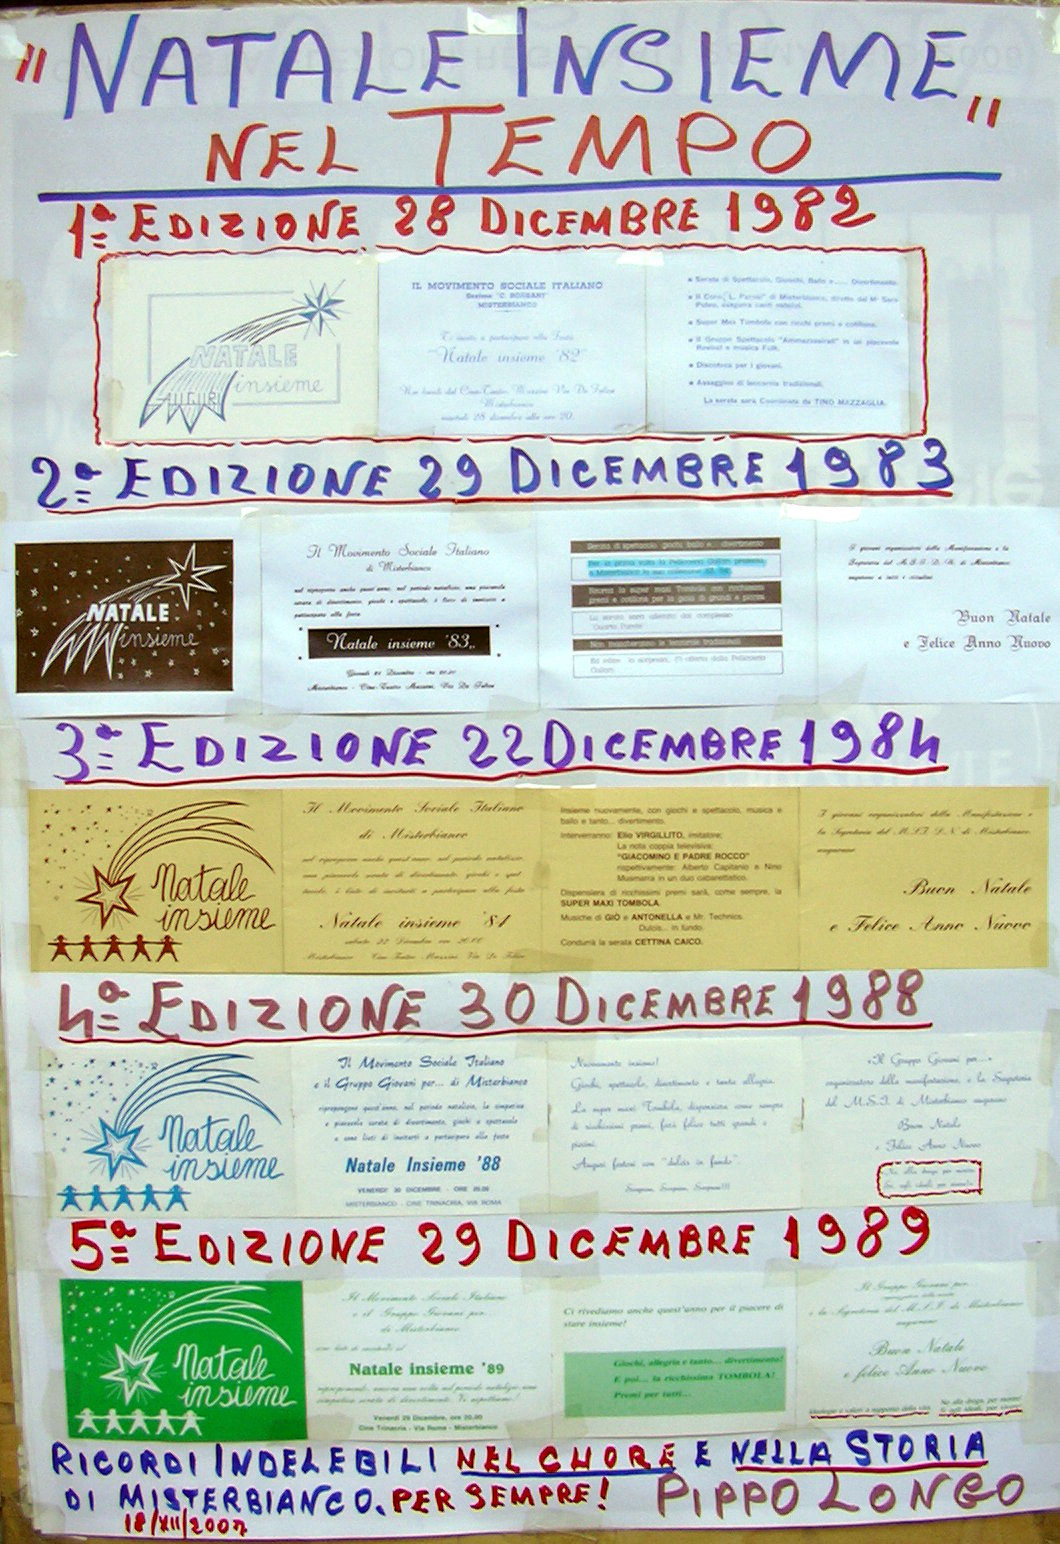 "NATALE INSIEME"
NEL TEMPO
1ª EDIZIONE 28 DICEMBRE 1982
NATALE
insieme
AUGURI
IL MOVIMENTO SOCIALE ITALIANO
Sezione "C. BORSANI"
MISTERBIANCO
Ti invita a partecipare alla Festa
"Natale insieme '82"
Nei locali del Cine-Teatro Mazzini Via De Felice
Misterbianco
martedì 28 dicembre alle ore 20.
Serata di Spettacolo, Giochi, Ballo e..... Divertimento.
Il Coro "L. Perosi" di Misterbianco, diretto dal M° Sara
eseguirà canti natalizi.
Super Max Tombola con ricchi premi e cotillons.
Il Gruppo Spettacolo in un piacevole
e musica Folk.
Discoteca per i giovani.
Assaggino di leccornie tradizionali.
La serata sarà Coordinata da TINO MAZZAGLIA.
2ª EDIZIONE 29 DICEMBRE 1983
NATALE
insieme
Il Movimento Sociale Italiano
di Misterbianco
nel riproporre anche quest'anno, nel periodo natalizio, una piacevole
serata di divertimento, giochi e spettacolo, è lieto di invitarti a
partecipare alla festa
Natale insieme '83"
Giovedì 29 Dicembre - ore 20,30
Misterbianco - Cine-Teatro Mazzini, Via De Felice
Serata di spettacolo, giochi, ballo e... divertimento
Per la prima volta la Pellicceria
a Misterbianco la sua collezione
Ritorna la super maxi Tombola con ricchissimi
premi e cotillons per la gioia di grandi e piccini
La serata sarà allietata dal complesso
"Quarta Parete"
Non mancheranno le leccornie tradizionali
Ed infine la sorpresa offerta dalla Pellicceria
I giovani organizzatori della Manifestazione e la
Segreteria del M.S.I. D.N. di Misterbianco,
augurano a tutti i cittadini
Buon Natale
e Felice Anno Nuovo
3ª EDIZIONE 22 DICEMBRE 1984
Natale
insieme
Il Movimento Sociale Italiano
di Misterbianco
nel riproporre anche quest'anno, nel periodo natalizio,
una piacevole serata di divertimento, giochi e spet-
tacolo, è lieto di invitarti a partecipare alla festa
Natale insieme '84
sabato 22 Dicembre ore 20.00
Misterbianco Cine Teatro Mazzini Via De Felice
Insieme nuovamente, con giochi e spettacolo, musica e
ballo e tanto... divertimento.
Interverranno: Elio VIRGILLITO, imitatore;
La nota coppia televisiva:
"GIACOMINO E PADRE ROCCO"
rispettivamente: Alberto Capitanio e Nino
Musmarra in un duo cabarettistico.
Dispensiera di ricchissimi premi sarà, come sempre, la
SUPER MAXI TOMBOLA.
Musiche di GIÒ e ANTONELLA e Mr. Technics.
Dulcis... in fundo.
Condurrà la serata CETTINA CAICO.
I giovani organizzatori della Manifestazione e
la Segreteria del M.S.I. D.N. di Misterbianco,
augurano
Buon Natale
e Felice Anno Nuovo
4ª EDIZIONE 30 DICEMBRE 1988
Natale
insieme
Il Movimento Sociale Italiano
e il Gruppo Giovani per... di Misterbianco
ripropongono quest'anno, nel periodo natalizio, la simpatica
e piacevole serata di divertimento, giochi e spettacolo
e sono lieti di invitarti a partecipare alla festa
Natale Insieme '88
VENERDI' 30 DICEMBRE - ORE 20.00
MISTERBIANCO - CINE TRINACRIA, VIA ROMA
Nuovamente insieme!
Giochi, spettacolo, divertimento e tanta allegria.
La super maxi Tombola, dispensiera come sempre
di ricchissimi premi, farà felice tutti grandi e
piccini.
Auguri festosi con "dulcis in fundo".
Sorpresa, Sorpresa, Sorpresa!!!
«Il Gruppo Giovani per...»
organizzatore della manifestazione, e la Segreteria
del M.S.I. di Misterbianco augurano
Buon Natale
e Felice Anno Nuovo
No alla droga per morire
Sì agli ideali per vivere
5ª EDIZIONE 29 DICEMBRE 1989
Natale
insieme
Il Movimento Sociale Italiano
e il Gruppo Giovani per...
di Misterbianco
sono lieti di invitarti al
Natale insieme '89
riproponendo, ancora una volta nel periodo natalizio, una
simpatica serata di divertimento. Ti aspettiamo.
Venerdì 29 Dicembre, ore 20,00
Cine Trinacria - Via Roma - Misterbianco
Ci rivediamo anche quest'anno per il piacere di
stare insieme!
Giochi, allegria e tanto... divertimento!
E poi... la ricchissima TOMBOLA!
Premi per tutti...
Il Gruppo Giovani per...
e la Segreteria del M.S.I. di Misterbianco
augurano
Buon Natale
e felice Anno Nuovo
Ideologie e valori a supporto della vita
No alla droga, per morire
Sì agli ideali, per vivere
RICORDI INDELEBILI NEL CUORE E NELLA STORIA
DI MISTERBIANCO. PER SEMPRE! PIPPO LONGO
18/XII/2007